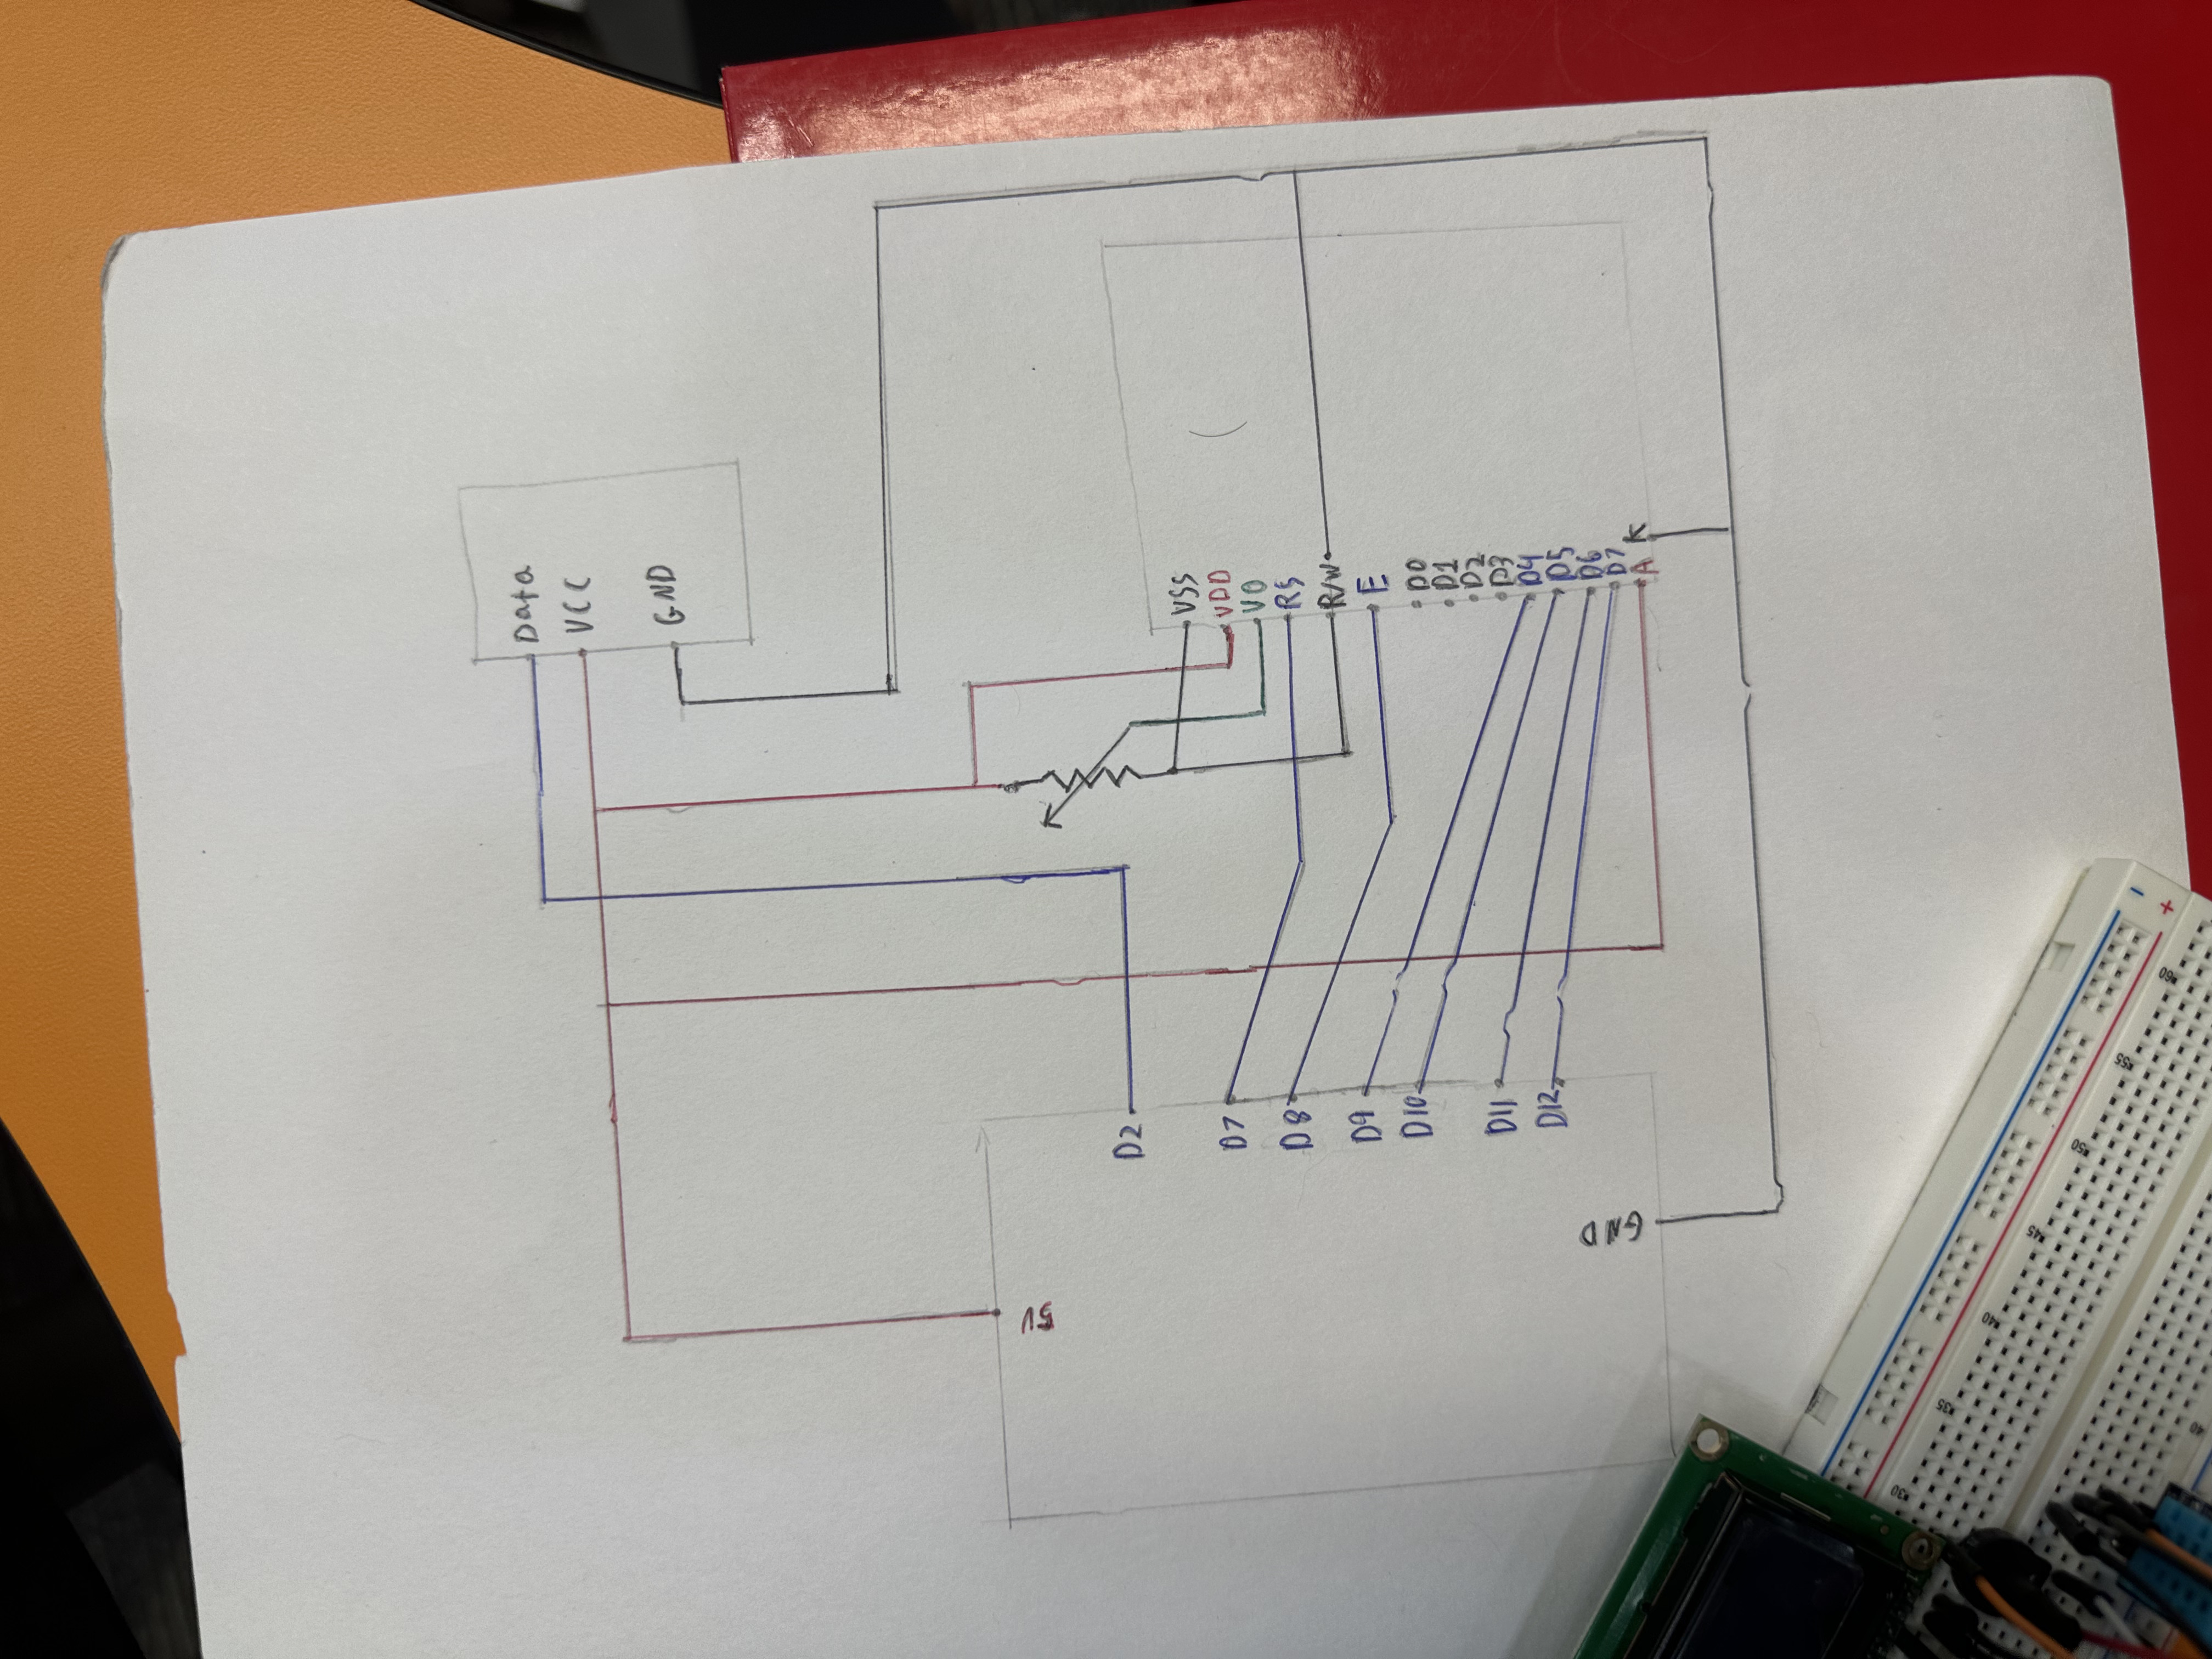 Data
VCC
GND
VSS
VDD
VO
RS
R/W
E
D0
D1
D2
D3
D4
D5
D6
D7
A
K
D2
D7
D8
D9
D10
D11
D12
GND
5V
- +
60
55
50
45
40
35
30
40